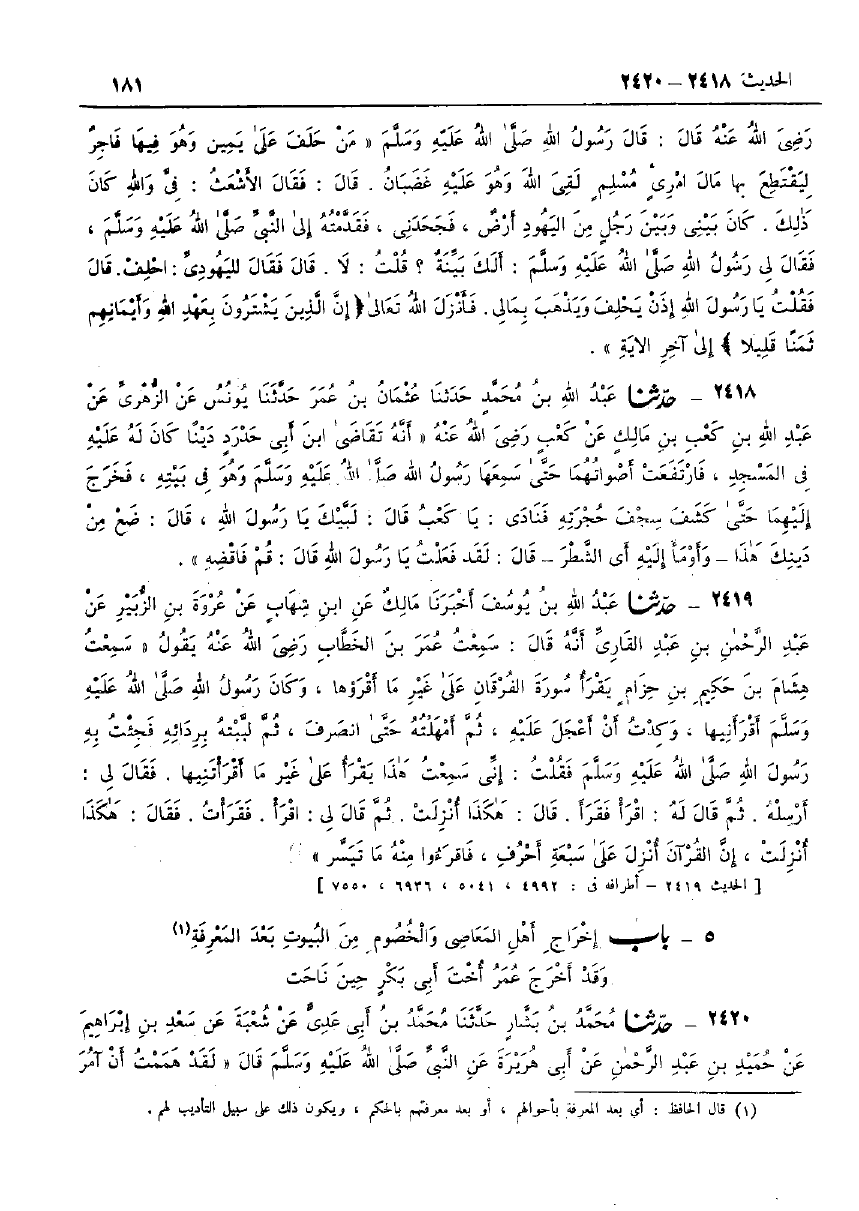 الحديث ٢٤١٨ – ٢٤٢٠
١٨١
رَضِيَ اللهُ عَنْهُ قَالَ : قَالَ رَسُولُ اللهِ صَلَّىٰ اللهُ عَلَيْهِ وَسَلَّمَ « مَنْ حَلَفَ عَلَىٰ يَمِينٍ وَهُوَ فِيهَا فَاجِرٌ
لِيَقْتَطِعَ بِهَا مَالَ امْرِئٍ مُسْلِمٍ لَقِيَ اللهَ وَهُوَ عَلَيْهِ غَضْبَانُ . قَالَ : فَقَالَ الأَشْعَثُ : فِىَّ وَاللهِ كَانَ
ذَٰلِكَ . كَانَ بَيْنِى وَبَيْنَ رَجُلٍ مِنَ اليَهُودِ أَرْضٌ ، فَجَحَدَنِى ، فَقَدَّمْتُهُ إِلىٰ النَّبِىِّ صَلَّىٰ اللهُ عَلَيْهِ وَسَلَّمَ ،
فَقَالَ لِى رَسُولُ اللهِ صَلَّىٰ اللهُ عَلَيْهِ وَسَلَّمَ : أَلَكَ بَيِّنَةٌ ؟ قُلْتُ : لَا . قَالَ فَقَالَ لليَهُودِىِّ : احْلِفْ. قَالَ
فَقُلْتُ يَا رَسُولَ اللهِ إِذَنْ يَحْلِفَ وَيَذْهَبَ بِمَالِى. فَأَنْزَلَ اللهُ تَعَالىٰ ﴿ إِنَّ الَّذِينَ يَشْتَرُونَ بِعَهْدِ اللهِ وَأَيْمَانِهِم
ثَمَنًا قَلِيلًا ﴾ إِلىٰ آخِرِ الآيَةِ » .
٢٤١٨ – حَدَّثَنَا عَبْدُ اللهِ بنُ مُحَمَّدٍ حَدَّثَنَا عُثْمَانُ بنُ عُمَرَ حَدَّثَنَا يُونُسُ عَنْ الزُّهْرِىِّ عَنْ
عَبدِ اللهِ بنِ كَعْبِ بنِ مَالِكٍ عَنْ كَعْبٍ رَضِىَ اللهُ عَنْهُ « أَنَّهُ تَقَاضَىٰ ابنَ أَبِى حَدْرَدٍ دَيْنًا كَانَ لَهُ عَلَيْهِ
فِى المَسْجِدِ ، فَارْتَفَعَتْ أَصْوَاتُهُمَا حَتَّىٰ سَمِعَهَا رَسُولُ اللهِ صَلَّىٰ اللهُ عَلَيْهِ وَسَلَّمَ وَهُوَ فِى بَيْتِهِ ، فَخَرَجَ
إِلَيْهِمَا حَتَّىٰ كَشَفَ سِجْفَ حُجْرَتِهِ فَنَادَى : يَا كَعْبُ قَالَ : لَبَّيْكَ يَا رَسُولَ اللهِ ، قَالَ : ضَعْ مِنْ
دَينِكَ هَٰذَا – وَأَوْمَأَ إِلَيْهِ أَى الشَّطْرَ – قَالَ : لَقَد فَعَلْتُ يَا رَسُولَ اللهِ قَالَ : قُمْ فَاقْضِهِ » .
٢٤١٩ – حَدَّثَنَا عَبْدُ اللهِ بنُ يُوسُفَ أَخْبَرَنَا مَالِكٌ عَنِ ابنِ شِهَابٍ عَنْ عُرْوَةَ بنِ الزُّبَيْرِ عَنْ
عَبدِ الرَّحْمٰنِ بنِ عَبْدٍ القَارِىِّ أَنَّهُ قَالَ : سَمِعْتُ عُمَرَ بنَ الخَطَّابِ رَضِىَ اللهُ عَنْهُ يَقُولُ « سَمِعْتُ
هِشَامَ بنَ حَكِيمِ بنِ حِزَامٍ يَقْرَأُ سُورَةَ الفُرْقَانِ عَلَىٰ غَيْرِ مَا أَقْرَؤها ، وَكَانَ رَسُولُ اللهِ صَلَّىٰ اللهُ عَلَيْهِ
وَسَلَّمَ أَقْرَأَنِيها ، وَكِدْتُ أَنْ أَعْجَلَ عَلَيْهِ ، ثُمَّ أَمْهَلْتُهُ حَتَّىٰ انصَرفَ ، ثُمَّ لَبَّبْتُهُ بِرِدَائِهِ فَجِئْتُ بِهِ
رَسُولَ اللهِ صَلَّىٰ اللهُ عَلَيْهِ وَسَلَّمَ فَقُلْتُ : إِنِّى سَمِعْتُ هَٰذَا يَقْرَأُ عَلىٰ غَيْرِ مَا أَقْرَأْتَنِيهَا . فَقَالَ لِى :
أَرْسِلْهُ . ثُمَّ قَالَ لَهُ : اقْرَأْ فَقَرَأَ . قَالَ : هَٰكَذَا أُنْزِلَتْ . ثُمَّ قَالَ لِى : اقْرَأْ . فَقَرَأْتُ . فَقَالَ : هَٰكَذَا
أُنْزِلَتْ ، إِنَّ القُرْآنَ أُنْزِلَ عَلَىٰ سَبْعَةِ أَحْرُفٍ ، فَاقرَءُوا مِنْهُ مَا تَيَسَّر »
[ الحديث ٢٤١٩ – أطرافه فى : ٤٩٩٢ ، ٥٠٤١ ، ٦٩٣٦ ، ٧٥٥٠ ]
٥ – باب إِخْرَاجِ أَهْلِ المَعَاصِى وَالْخُصُومِ مِنَ البُيوتِ بَعْدَ المَعْرِفَةِ(١)
وَقَدْ أَخْرَجَ عُمَرُ أُخْتَ أَبِى بَكْرٍ حِينَ نَاحَت
٢٤٢٠ – حَدَّثَنَا مُحَمَّدُ بنُ بَشَّارٍ حَدَّثَنَا مُحَمَّدُ بنُ أَبِى عَدِىٍّ عَنْ شُعْبَةَ عَن سَعْدِ بنِ إِبْرَاهِيمَ
عَنْ حُمَيْدِ بنِ عَبدِ الرَّحْمٰنِ عَنْ أَبِى هُرَيْرَةَ عَنِ النَّبِىِّ صَلَّىٰ اللهُ عَلَيْهِ وَسَلَّمَ قَالَ « لَقَدْ هَمَمْتُ أَنْ آمُرَ
(١) قال الحافظ : أي بعد المعرفة بأحوالهم ، أو بعد معرفتهم بالحكم ، ويكون ذلك على سبيل التأديب لهم .